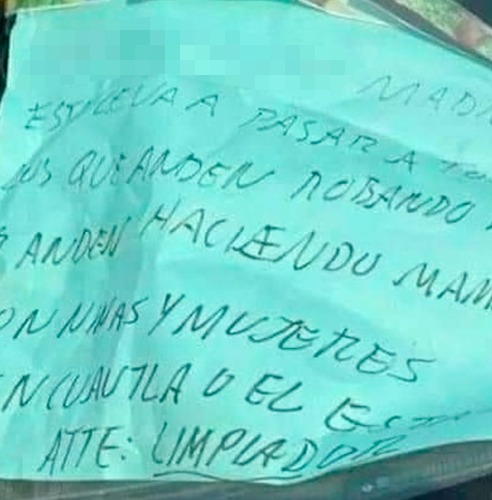 MADA
ESTO LEVA A PASAR A TO
LOS QUE ANDEN ROBANDO
ANDEN HACIENDO MAM
ON NIÑAS Y MUJERES
EN CUAUTLA O EL
ATTE: LIMPIADOR